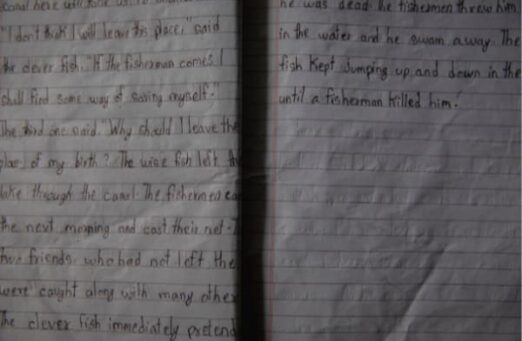 canal here will take us to
"I don't think I will leave this place," said
the clever fish. "If the fisherman comes I
shall find some way of saving myself."
The third one said. "Why should I leave the
place of my birth? The wise fish left the
lake through the canal. The fishermen ca
the next morning and cast their net.
two friends who had not left the
were caught along with many other
The clever fish immediately pretend
he was dead. The fishermen threw him
in the water and he swam away. The
fish kept jumping up and down in the
until a fisherman killed him.